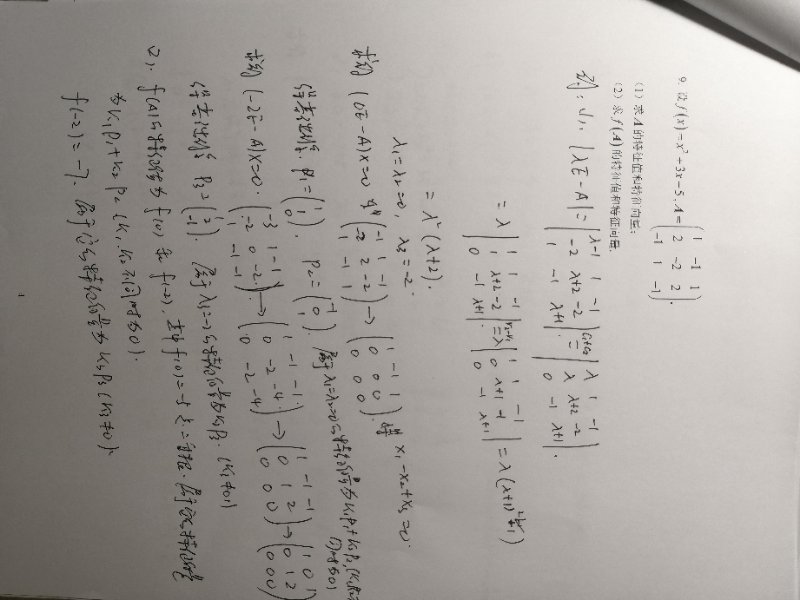 9. 设 f(x)=x²+3x-5, A=(1 -1 1; 2 -2 2; -1 1 -1).
(1) 求 A 的特征值和特征向量;
(2) 求 f(A) 的特征值和特征向量.
解: (1). |λE-A| = |λ-1 1 -1; -2 λ+2 -2; 1 -1 λ+1| =(c₁+c₂) |λ 1 -1; λ λ+2 -2; 0 -1 λ+1|.
= λ |1 1 -1; 1 λ+2 -2; 0 -1 λ+1| =(r₂-r₁) λ |1 1 -1; 0 λ+1 -1; 0 -1 λ+1| = λ((λ+1)²-1)
= λ²(λ+2).
λ₁=λ₂=0, λ₃=-2.
求解 (0E-A)X=0 (-1 1 -1; -2 2 -2; 1 -1 1) → (1 -1 1; 0 0 0; 0 0 0). 得 x₁-x₂+x₃=0.
得基础解系. p₁=(1; 1; 0), p₂=(-1; 0; 1). 属于λ₁=λ₂=0的特征向量为k₁p₁+k₂p₂, (k₁,k₂不同时为0)
求解 (-2E-A)X=0. (-3 1 -1; -2 0 -2; 1 -1 -1) → (1 -1 -1; 0 -2 -4; 0 -2 -4) → (1 -1 -1; 0 1 2; 0 0 0) → (1 0 1; 0 1 2; 0 0 0)
得基础解系 p₃=(1; 2; -1). 属于λ₃=-2的特征向量为k₃p₃. (k₃≠0)
(2). f(A)的特征值为 f(0) 和 f(-2), 其中 f(0)=-5 是二重根. 属于它的特征向量
为 k₁p₁+k₂p₂ (k₁,k₂不同时为0).
f(-2)=-7. 属于它的特征向量为 k₃p₃ (k₃≠0).
1